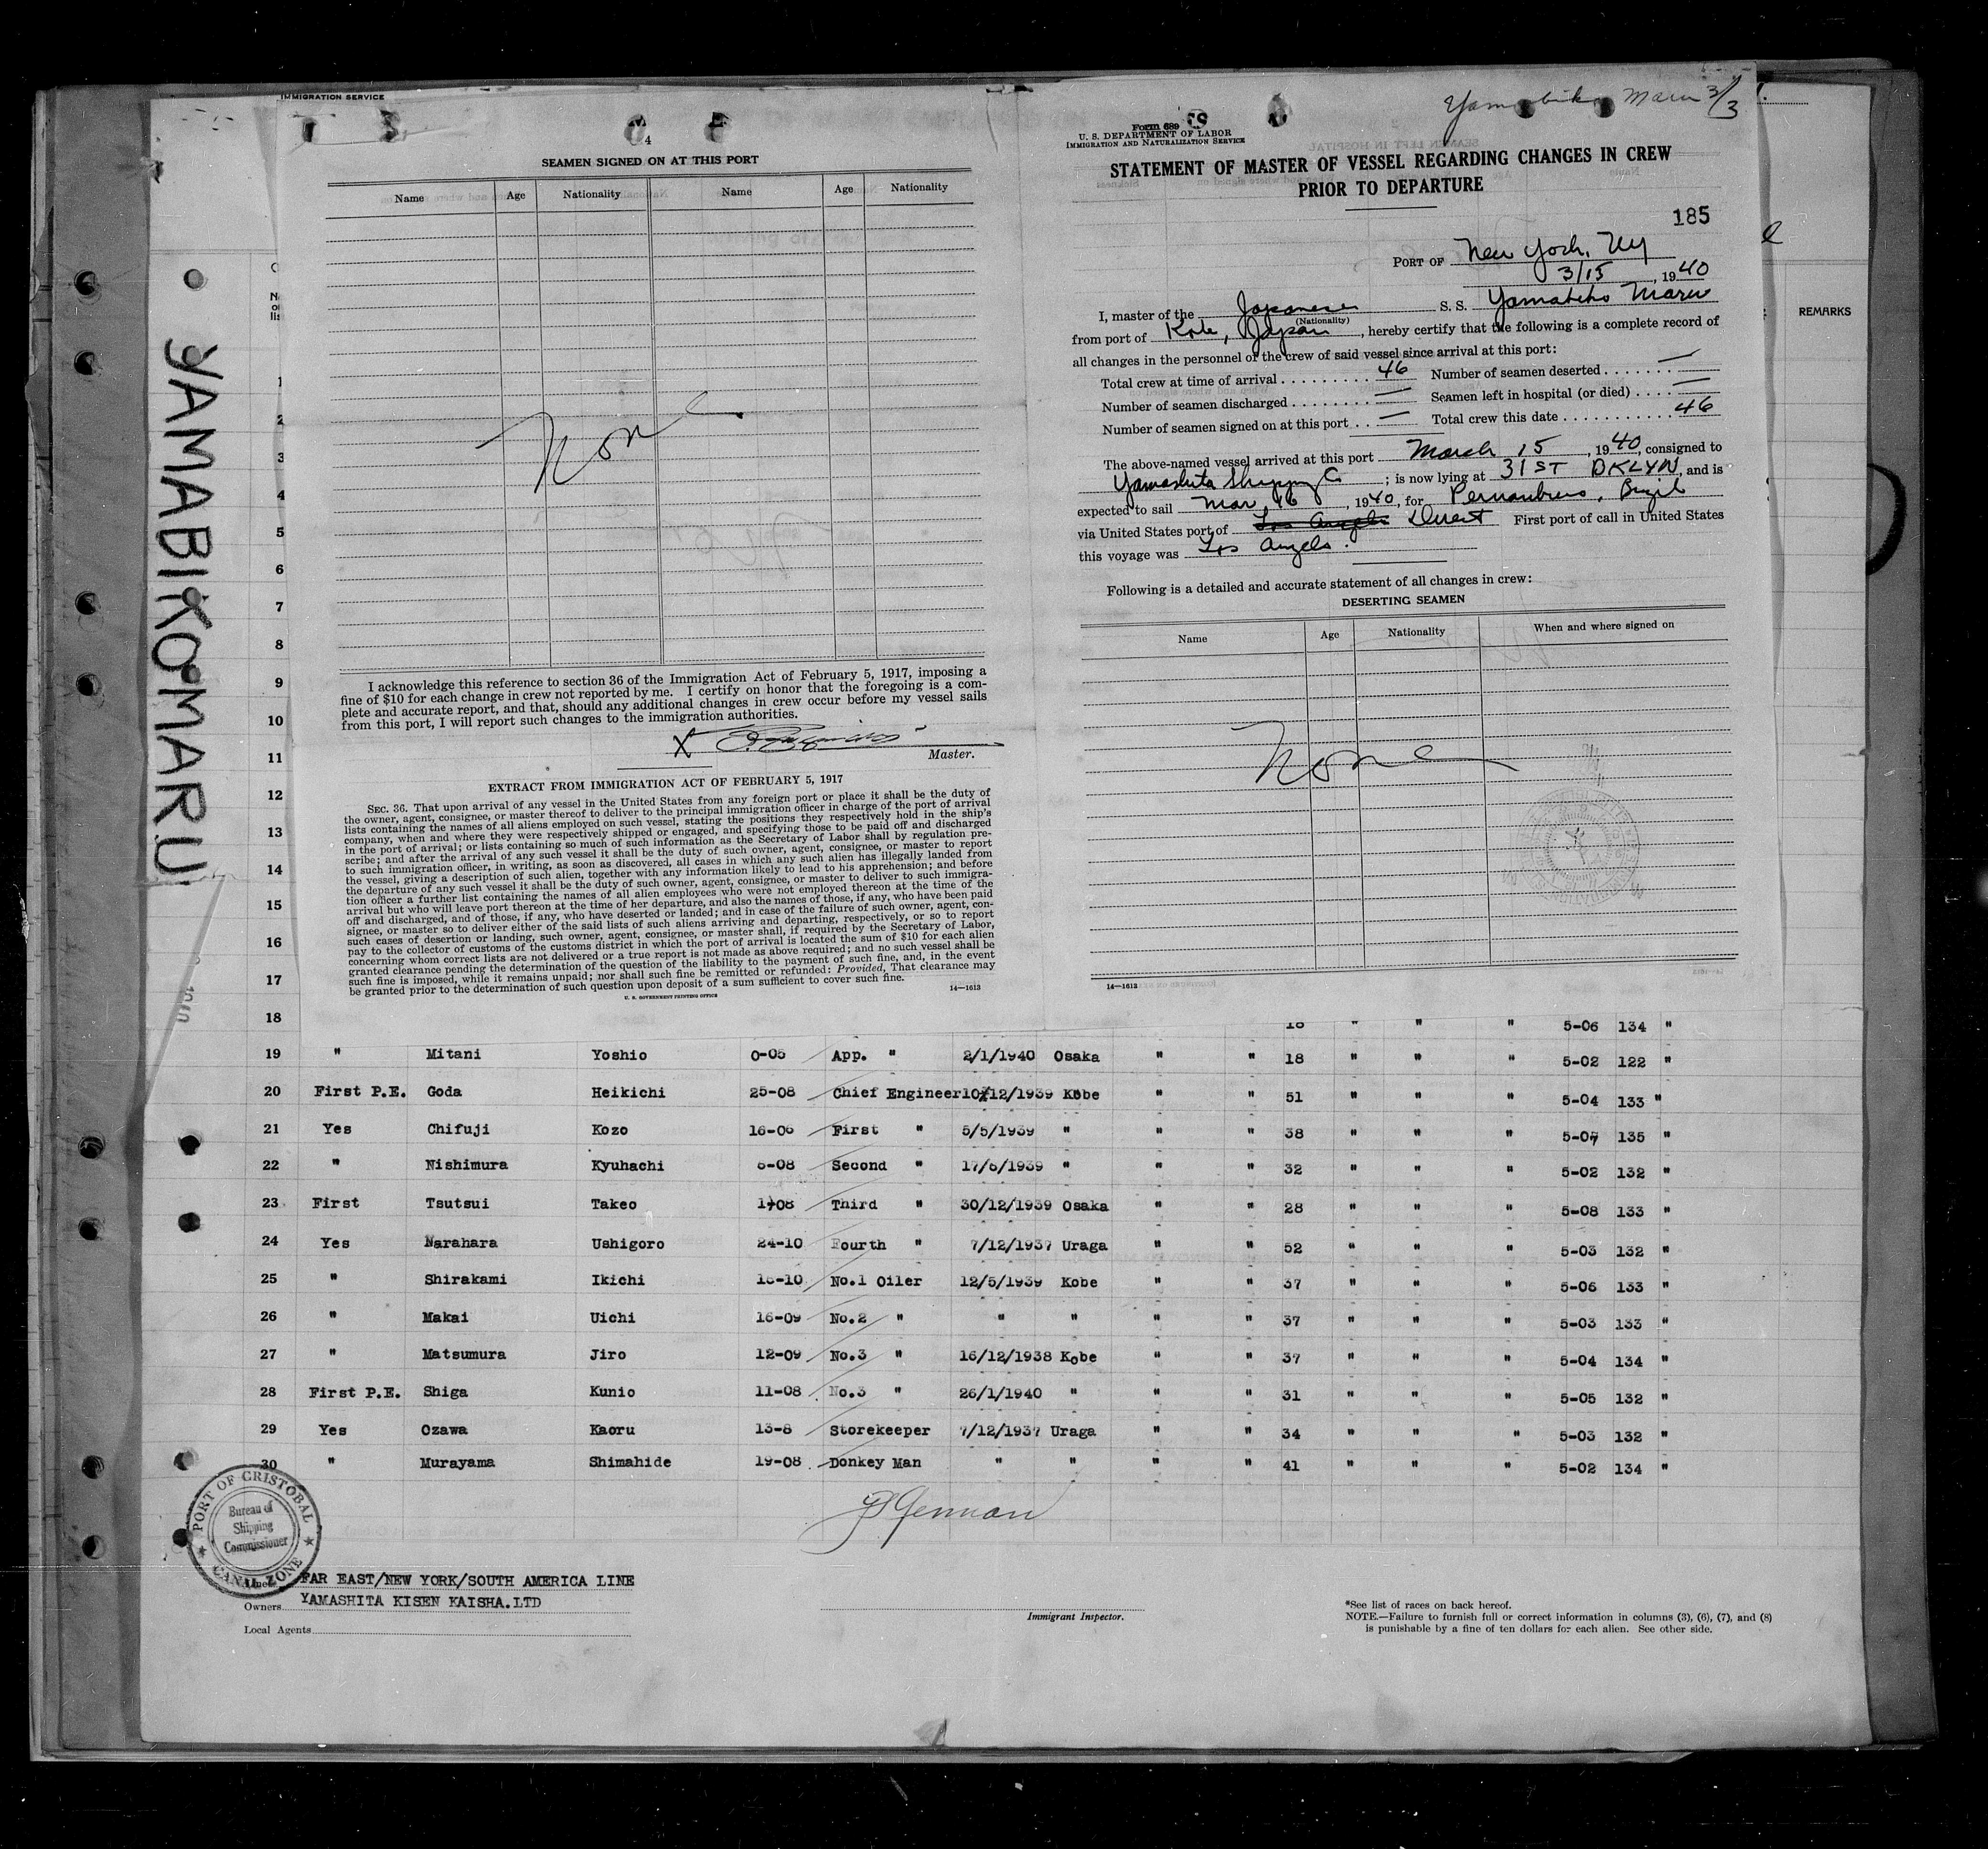 IMMIGRATION SERVICE
4
SEAMEN SIGNED ON AT THIS PORT
Name Age Nationality Name Age Nationality
None
I acknowledge this reference to section 36 of the Immigration Act of February 5, 1917, imposing a
fine of $10 for each change in crew not reported by me. I certify on honor that the foregoing is a com-
plete and accurate report, and that, should any additional changes in crew occur before my vessel sails
from this port, I will report such changes to the immigration authorities.
X
Master.
EXTRACT FROM IMMIGRATION ACT OF FEBRUARY 5, 1917
SEC. 36. That upon arrival of any vessel in the United States from any foreign port or place it shall be the duty of
the owner, agent, consignee, or master thereof to deliver to the principal immigration officer in charge of the port of arrival
lists containing the names of all aliens employed on such vessel, stating the positions they respectively hold in the ship's
company, when and where they were respectively shipped or engaged, and specifying those to be paid off and discharged
in the port of arrival; or lists containing so much of such information as the Secretary of Labor shall by regulation pre-
scribe; and after the arrival of any such vessel it shall be the duty of such owner, agent, consignee, or master to report
to such immigration officer, in writing, as soon as discovered, all cases in which any such alien has illegally landed from
the vessel, giving a description of such alien, together with any information likely to lead to his apprehension; and before
the departure of any such vessel it shall be the duty of such owner, agent, consignee, or master to deliver to such immigra-
tion officer a further list containing the names of all alien employees who were not employed thereon at the time of the
arrival but who will leave port thereon at the time of her departure, and also the names of those, if any, who have been paid
off and discharged, and of those, if any, who have deserted or landed; and in case of the failure of such owner, agent, con-
signee, or master so to deliver either of the said lists of such aliens arriving and departing, respectively, or so to report
such cases of desertion or landing, such owner, agent, consignee, or master shall, if required by the Secretary of Labor,
pay to the collector of customs of the customs district in which the port of arrival is located the sum of $10 for each alien
concerning whom correct lists are not delivered or a true report is not made as above required; and no such vessel shall be
granted clearance pending the determination of the question of the liability to the payment of such fine, and, in the event
such fine is imposed, while it remains unpaid; nor shall such fine be remitted or refunded: Provided, That clearance may
be granted prior to the determination of such question upon deposit of a sum sufficient to cover such fine.
U. S. GOVERNMENT PRINTING OFFICE 14—1613
Yamabiko Maru 3/3
Form 689
U. S. DEPARTMENT OF LABOR
IMMIGRATION AND NATURALIZATION SERVICE
STATEMENT OF MASTER OF VESSEL REGARDING CHANGES IN CREW
PRIOR TO DEPARTURE
185
PORT OF New York, NY
3/15, 1940
I, master of the Japanese S. S. Yamabiko Maru
(Nationality)
from port of Kobe, Japan, hereby certify that the following is a complete record of
all changes in the personnel of the crew of said vessel since arrival at this port:
Total crew at time of arrival . . . . . . . . . . 46 Number of seamen deserted . . . . . . . —
Number of seamen discharged . . . . . . . . — Seamen left in hospital (or died) . . . . —
Number of seamen signed on at this port . . — Total crew this date . . . . . . . . . . . . 46
The above-named vessel arrived at this port March 15, 1940, consigned to
Yamashita Shipping Co; is now lying at 31ST BKLYN, and is
expected to sail Mar 16, 1940, for Pernambuco, Brazil
via United States port of Los Angeles Direct First port of call in United States
this voyage was Los Angeles.
Following is a detailed and accurate statement of all changes in crew:
DESERTING SEAMEN
Name Age Nationality When and where signed on
None
14—1613
REMARKS
YAMABIKO MARU
1
2
3
4
5
6
7
8
9
10
11
12
13
14
15
16
17
18 " " " 5-06 134 "
19 " Mitani Yoshio 0-05 App. " 2/1/1940 Osaka " " 18 " " " 5-02 122 "
20 First P.E. Goda Heikichi 25-08 Chief Engineer 10/12/1939 Kobe " " 51 " " " 5-04 133 "
21 Yes Chifuji Kozo 16-06 First " 5/5/1939 " " " 38 " " " 5-07 135 "
22 " Nishimura Kyuhachi 6-08 Second " 17/6/1939 " " " 32 " " " 5-02 132 "
23 First Tsutsui Takeo 1-08 Third " 30/12/1939 Osaka " " 28 " " " 5-08 133 "
24 Yes Narahara Ushigoro 24-10 Fourth " 7/12/1937 Uraga " " 52 " " " 5-03 132 "
25 " Shirakami Ikichi 16-10 No.1 Oiler 12/5/1939 Kobe " " 37 " " " 5-06 133 "
26 " Makai Uichi 16-09 No.2 " " " " " 37 " " " 5-03 133 "
27 " Matsumura Jiro 12-09 No.3 " 16/12/1938 Kobe " " 37 " " " 5-04 134 "
28 First P.E. Shiga Kunio 11-08 No.3 " 26/1/1940 " " " 31 " " " 5-05 132 "
29 Yes Ozawa Kaoru 13-8 Storekeeper 7/12/1937 Uraga " " 34 " " " 5-03 132 "
30 " Murayama Shimahide 19-08 Donkey Man " " " " 41 " " " 5-02 134 "
PORT OF CRISTOBAL
Bureau of
Shipping
Commissioner
CANAL ZONE
Line FAR EAST/NEW YORK/SOUTH AMERICA LINE
Owners YAMASHITA KISEN KAISHA.LTD
Local Agents
Immigrant Inspector.
*See list of races on back hereof.
NOTE.—Failure to furnish full or correct information in columns (3), (6), (7), and (8)
is punishable by a fine of ten dollars for each alien. See other side.